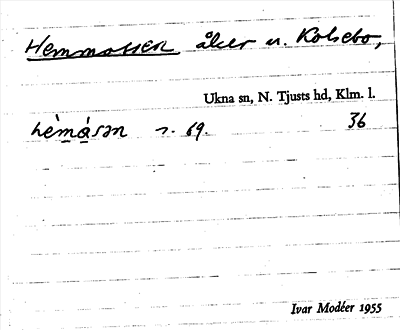 Hemmossen åker u. Kolsebo,
Ukna sn, N. Tjusts hd, Klm. l.
hèmä́sən r. 69. 36
Ivar Modéer 1955